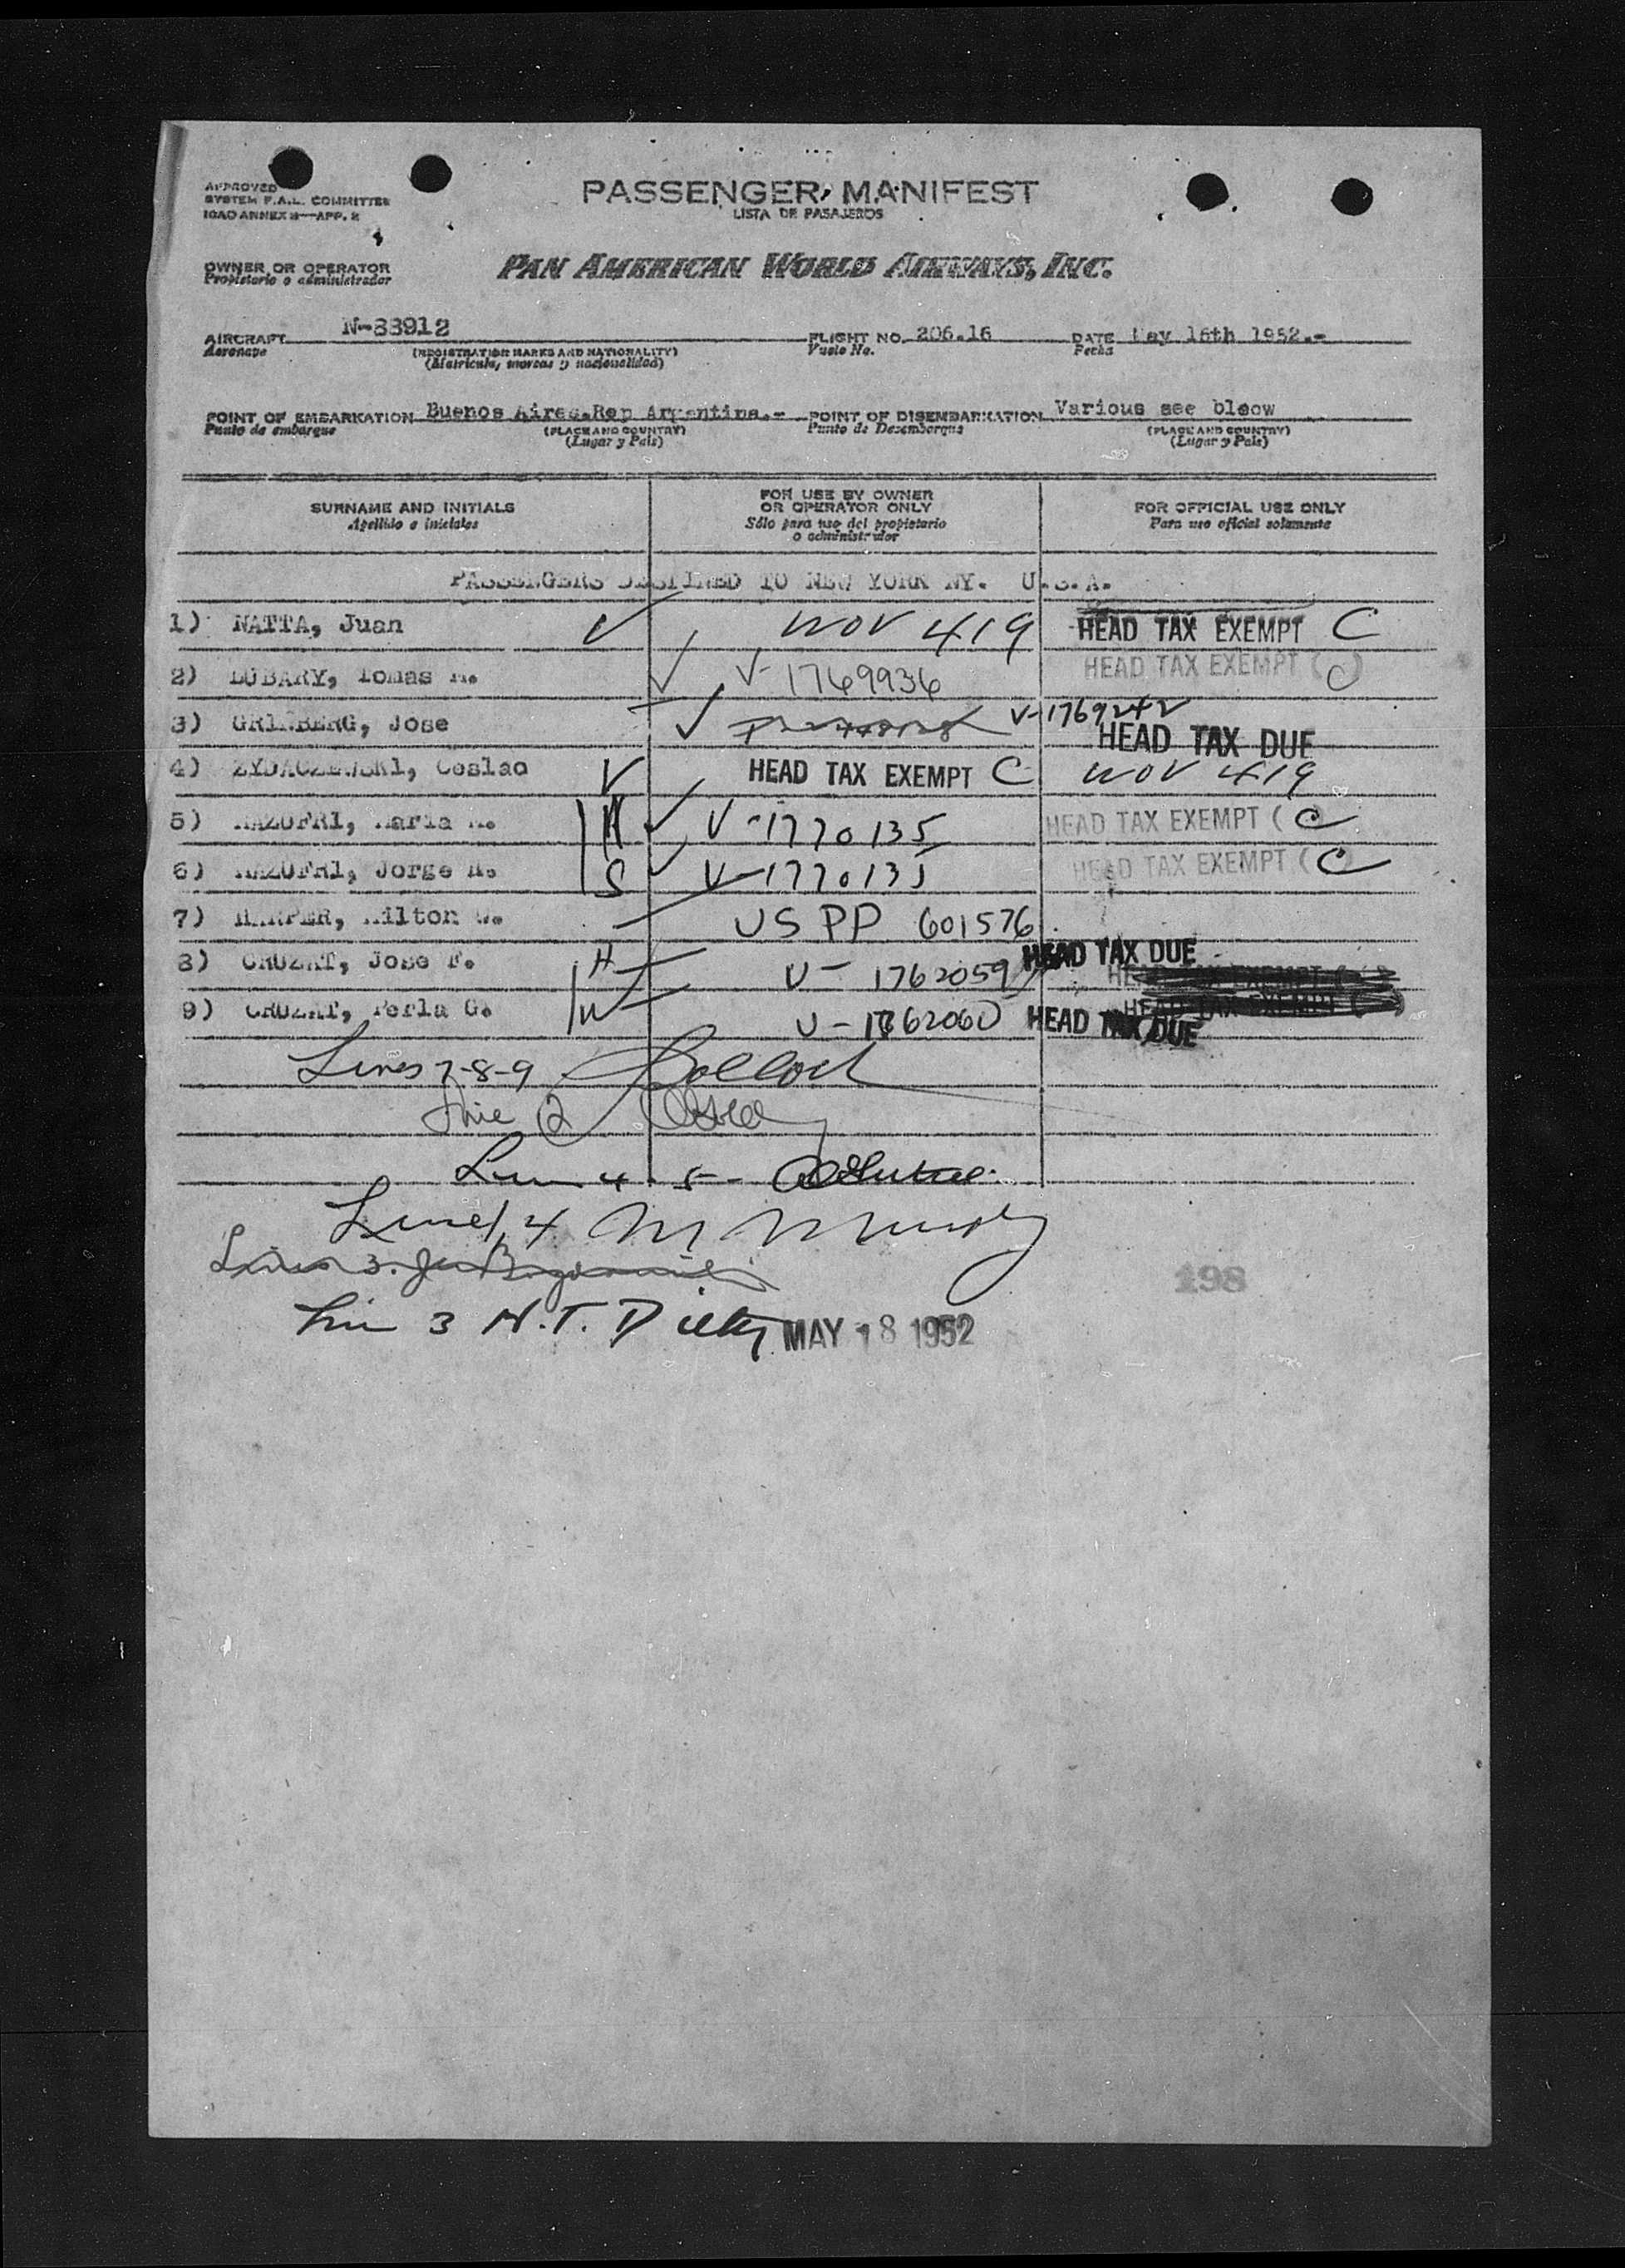 APPROVED
SYSTEM F.A.L. COMMITTEE
ICAO ANNEX 9—APP. 2
PASSENGER MANIFEST
LISTA DE PASAJEROS
OWNER OR OPERATOR
Propietario o administrador
PAN AMERICAN WORLD AIRWAYS, INC.
AIRCRAFT N-88912 FLIGHT NO. 206.16 DATE May 16th 1952.-
Aeronave (REGISTRATION MARKS AND NATIONALITY) Vuelo No. Fecha
(Matricula, marcas y nacionalidad)
POINT OF EMBARKATION Buenos Aires.Rep Argentina.- POINT OF DISEMBARKATION Various see bleow
Punto de embarque (PLACE AND COUNTRY) Punto de Desembarque (PLACE AND COUNTRY)
(Lugar y País) (Lugar y País)
SURNAME AND INITIALS FOR USE BY OWNER OR OPERATOR ONLY FOR OFFICIAL USE ONLY
Apellido e iniciales Sólo para uso del propietario o administrador Para uso oficial solamente
PASSENGERS DESTINED TO NEW YORK NY. U.S.A.
1) NATTA, Juan WOV 419 HEAD TAX EXEMPT C
2) DUBARY, Tomas M. V-1769936 HEAD TAX EXEMPT (C)
3) GRINBERG, Jose V-1769242 HEAD TAX DUE
4) ZYDACZEWSKI, Ceslao HEAD TAX EXEMPT C WOV 419
5) MAZUFRI, Maria M. V-1770135 HEAD TAX EXEMPT (C
6) MAZUFRI, Jorge A. S V-1770135 HEAD TAX EXEMPT (C)
7) HARPER, Milton W. US PP 601576
8) CRUZAT, Jose F. H V-1762059 HEAD TAX DUE
9) CRUZAT, Perla G. W V-1762060 HEAD TAX DUE
Lines 7-8-9
Line 2
Line 4
Line 3 N.T. MAY 18 1952
198